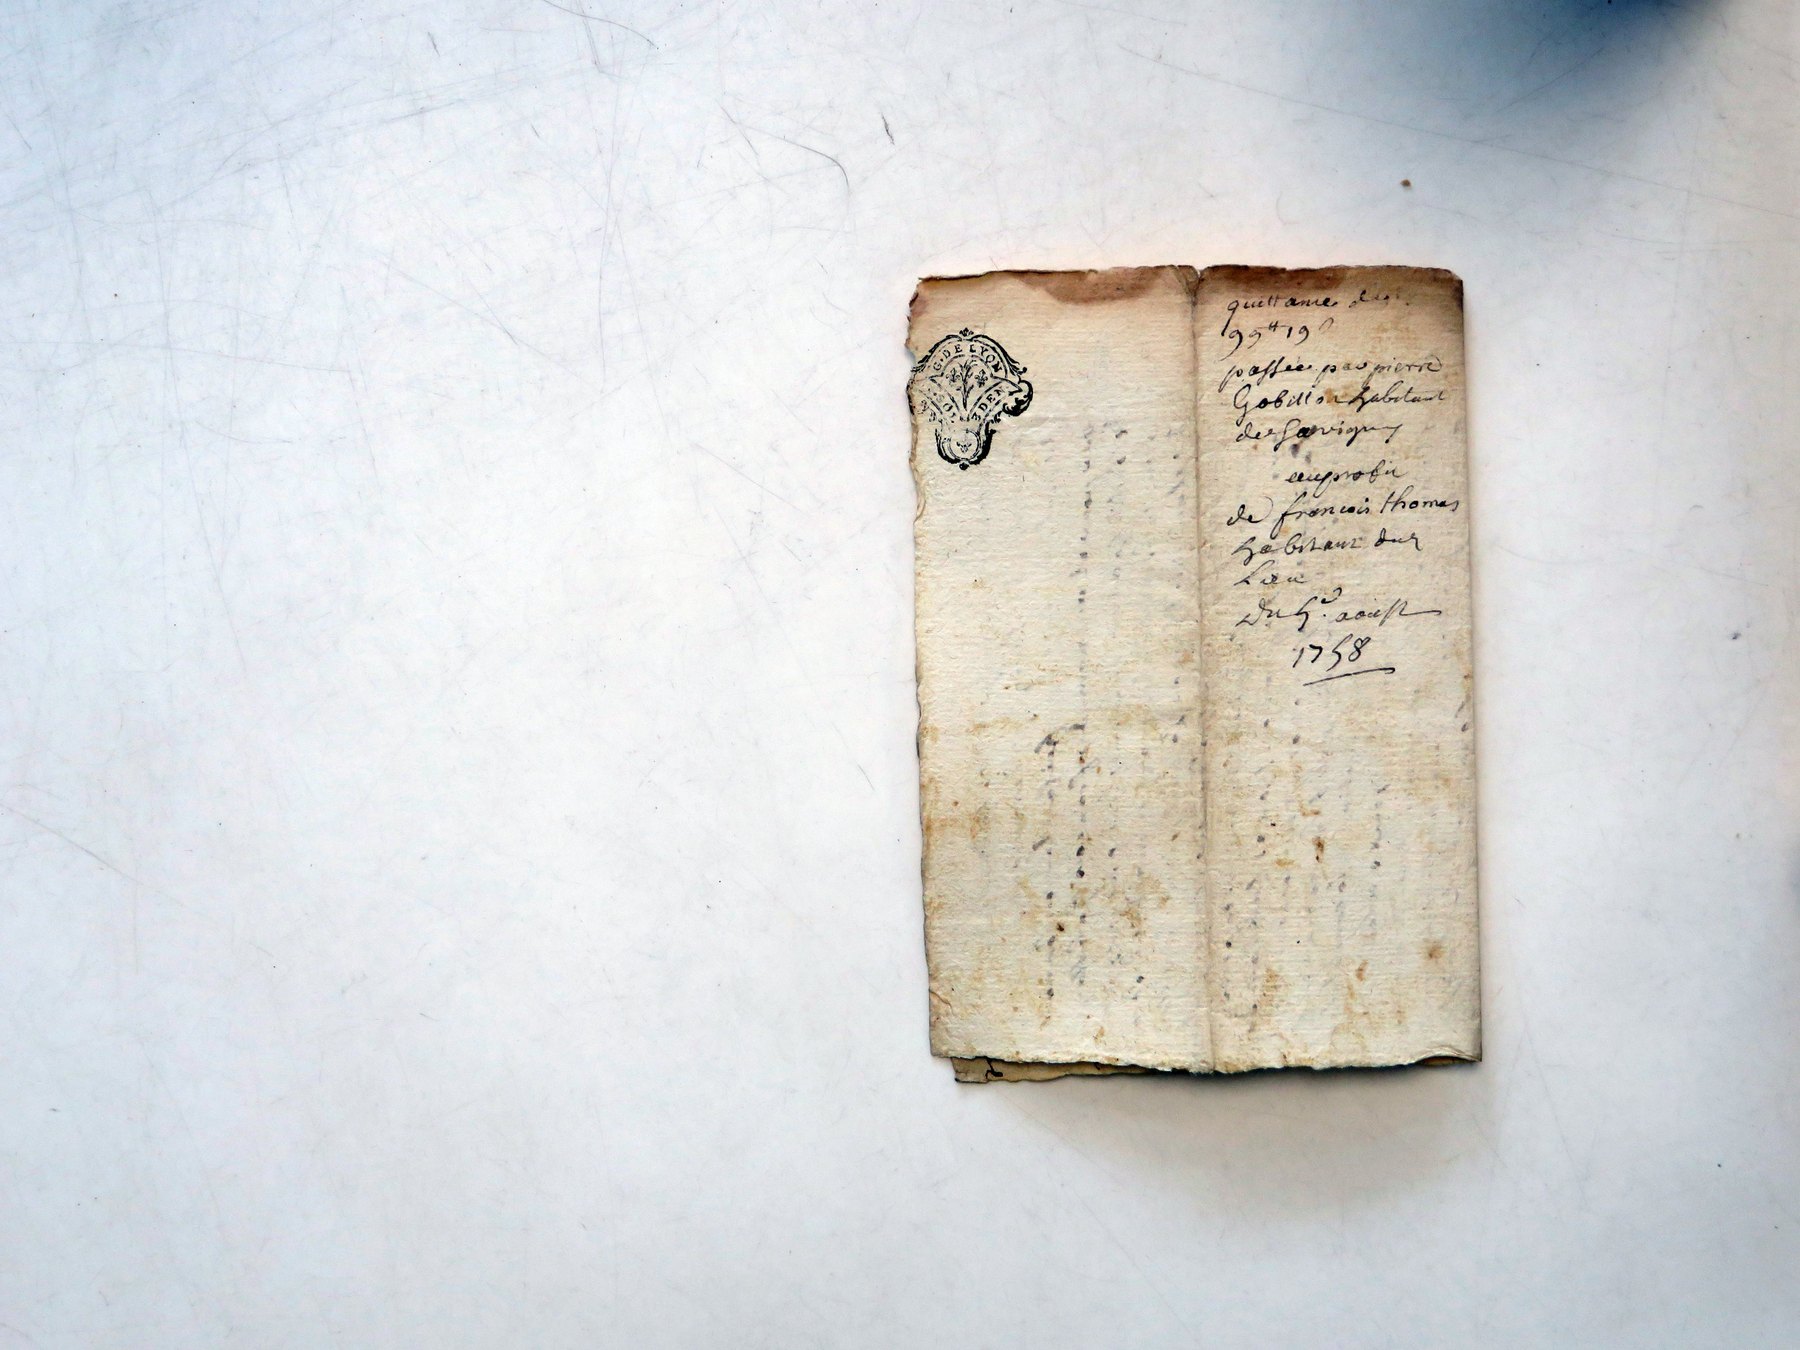 G. DE LYON
DEN
quittance de
99tt 19s
passée par pierre
Gobillon habitant
de Savigny
au profit
de francois thomas
habitant dud
Lieu
du 5e aoust
1758